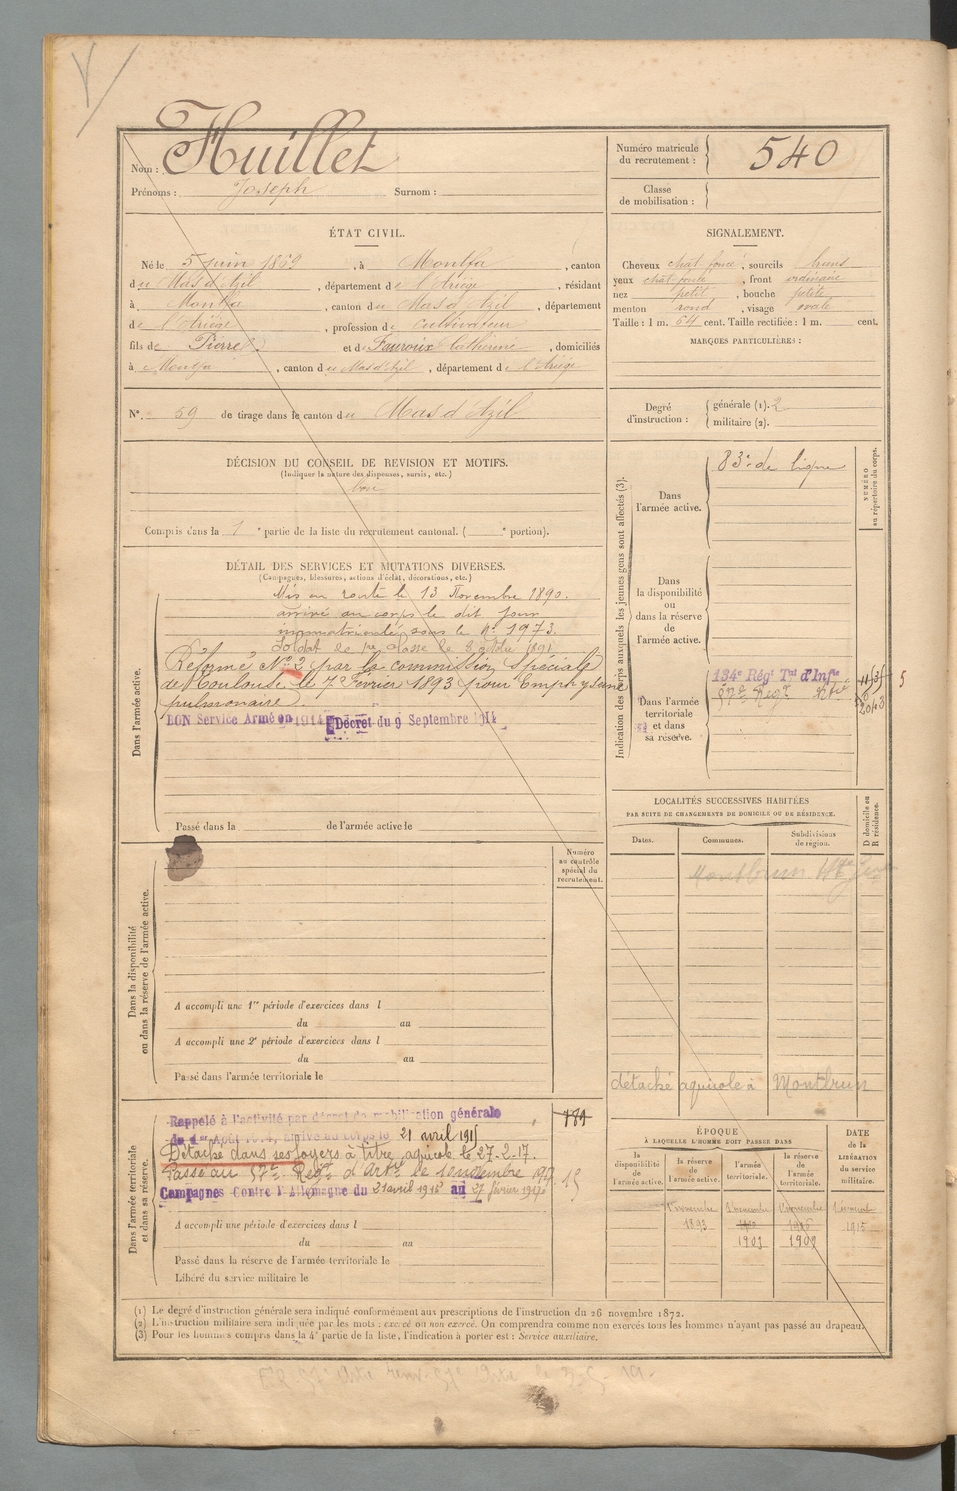 Nom : Huillet
Prénoms : Joseph Surnom :
Numéro matricule
du recrutement : 540
Classe
de mobilisation :
ÉTAT CIVIL.
Né le 5 juin 1869, à Montfa, canton
du Mas d'Azil, département de l'Ariège, résidant
à Montfa, canton du Mas d'Azil, département
de l'Ariège, profession de cultivateur
fils de Pierre et de Fauroux Catherine, domiciliés
à Montfa, canton du Mas d'Azil, département de l'Ariège
N° 59 de tirage dans le canton du Mas d'Azil
SIGNALEMENT.
Cheveux chât foncé, sourcils bruns
yeux chât foncé, front ordinaire
nez petit, bouche petite
menton rond, visage ovale
Taille : 1 m. 64 cent. Taille rectifiée : 1 m. cent.
MARQUES PARTICULIÈRES :
Degré
d'instruction :
générale (1). 2
militaire (2).
DÉCISION DU CONSEIL DE REVISION ET MOTIFS.
(Indiquer la nature des dispenses, sursis, etc.)
bon
Compris dans la 1e partie de la liste du recrutement cantonal. ( e portion).
DÉTAIL DES SERVICES ET MUTATIONS DIVERSES.
(Campagnes, blessures, actions d'éclat, décorations, etc.)
Dans l'armée active.
Mis en route le 13 Novembre 1890.
arrivé au corps le dit jour
immatriculé sous le N° 1973.
Soldat de 1re classe le 8 octobre 1891
Réformé N° 2 par la commission spéciale
de Toulouse le 7 Février 1893 pour Emphysème
pulmonaire.
BON Service Armé en 1914 Décret du 9 Septembre 1914
Passé dans la de l'armée active le
Indication des corps auxquels les jeunes gens sont affectés (3).
NUMÉRO
au répertoire du corps.
Dans
l'armée active.
83e de ligne
Dans
la disponibilité
ou
dans la réserve
de
l'armée active.
Dans l'armée
territoriale
et dans
sa réserve.
134e Régt Tal d'Infie
57e Régt Artie
5
LOCALITÉS SUCCESSIVES HABITÉES
PAR SUITE DE CHANGEMENTS DE DOMICILE OU DE RÉSIDENCE.
Dates. Communes. Subdivisions
de région.
D domicile ou
R résidence.
Montbrun
détaché agricole à Montbrun
Dans la disponibilité
ou dans la réserve de l'armée active.
Numéro
au contrôle
spécial du
recrutement.
A accompli une 1re période d'exercices dans l
du au
A accompli une 2e période d'exercices dans l
du au
Passé dans l'armée territoriale le
Dans l'armée territoriale
et dans sa réserve.
Rappelé à l'activité par décret de mobilisation générale
du 1er Août 1914, arrivé au corps le 21 avril 1915
Détaché dans ses foyers à titre agricole le 27-2-17.
Passé au 57e Régt d'Artie le 1er novembre 1917
Campagnes Contre l'Allemagne du 21 avril 1915 au 27 février 1917
A accompli une période d'exercices dans l
du au
Passé dans la réserve de l'armée territoriale le
Libéré du service militaire le
ÉPOQUE
À LAQUELLE L'HOMME DOIT PASSER DANS
la
disponibilité
de
l'armée active.
la réserve
de
l'armée active.
l'armée
territoriale.
la réserve
de
l'armée
territoriale.
DATE
de la
LIBÉRATION
du service
militaire.
1er novembre
1893
1er novembre
1903
1er novembre
1909
1er novembre
1915
(1) Le degré d'instruction générale sera indiqué conformément aux prescriptions de l'instruction du 26 novembre 1872.
(2) L'instruction militaire sera indiquée par les mots : exercé ou non exercé. On comprendra comme non exercés tous les hommes n'ayant pas passé au drapeau.
(3) Pour les hommes compris dans la 4e partie de la liste, l'indication à porter est : Service auxiliaire.